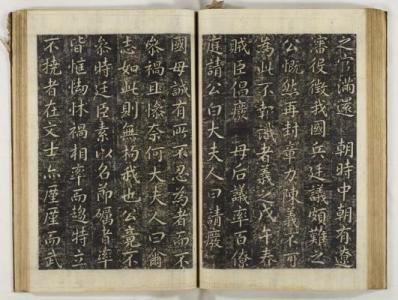 之官滿還　朝時中朝有遼
瀋役徵我國兵廷議頗難之
公慨然再封章力陳義不可
為此不報識者義之戊午春
賊臣倡廢　母后議率百僚
庭請公白大夫人曰請廢
國母誠有所不忍為者而不
參禍且慘奈何大夫人曰爾
志如此則無拘我也公竟不
參時廷臣素以名節礪者率
皆恇㥘怵禍相率而趨特立
不撓者在文士亦厪厪而武